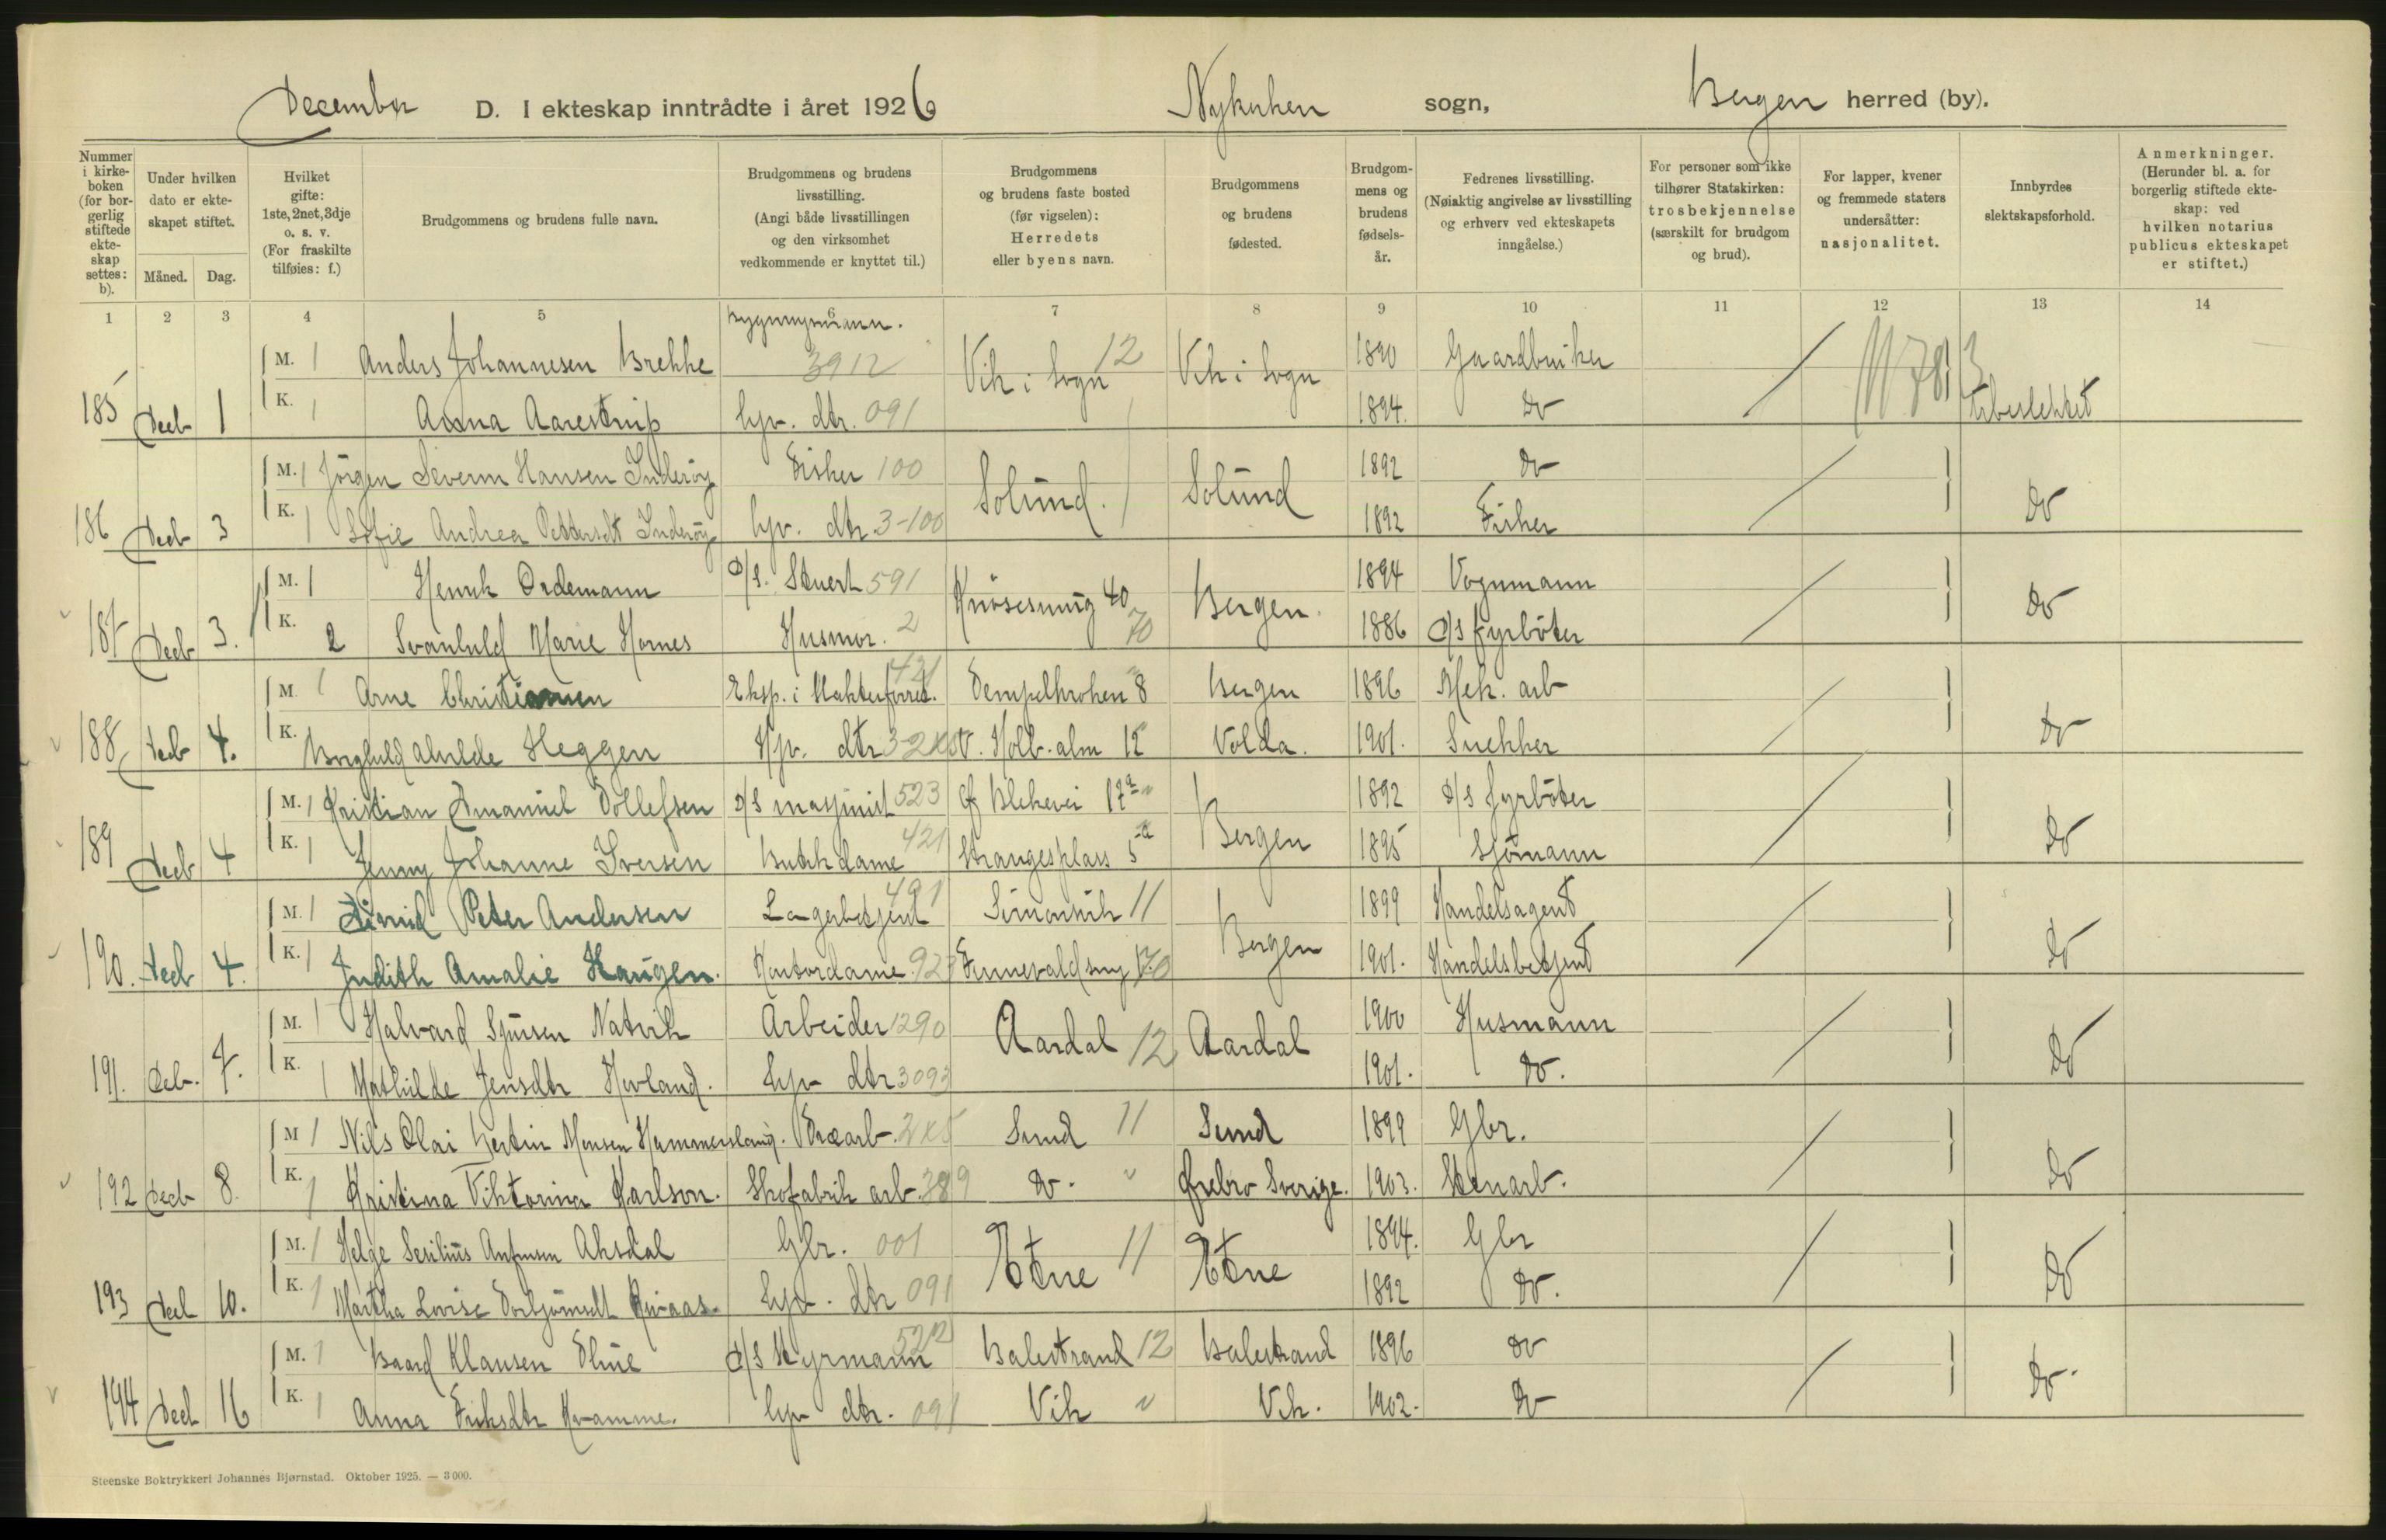 December D. I ekteskap inntrådte i året 1926 Nykirken sogn, Bergen herred (by).
Nummer i kirkeboken (for borgerlig stiftede ekteskap settes: b).
Under hvilken dato er ekteskapet stiftet.
Måned. Dag.
Hvilket gifte: 1ste, 2net, 3dje o. s. v. (For fraskilte tilføies: f.)
Brudgommens og brudens fulle navn.
Brudgommens og brudens livsstilling. (Angi både livsstillingen og den virksomhet vedkommende er knyttet til.)
Brudgommens og brudens faste bosted (før vigselen): Herredets eller byens navn.
Brudgommens og brudens fødested.
Brudgommens og brudens fødselsår.
Fedrenes livsstilling. (Nøiaktig angivelse av livsstilling og erhverv ved ekteskapets inngåelse.)
For personer som ikke tilhører Statskirken: trosbekjennelse (særskilt for brudgom og brud).
For lapper, kvener og fremmede staters undersåtter: nasjonalitet.
Innbyrdes slektskapsforhold.
Anmerkninger. (Herunder bl. a. for borgerlig stiftede ekteskap: ved hvilken notarius publicus ekteskapet er stiftet.)
1 2 3 4 5 6 7 8 9 10 11 12 13 14
Bygningsmann.
M. 1 Anders Johannesen Brekke 3912 Vik i Sogn 12 Vik i Sogn 1890 Gaardbruker
185 Decb 1 K. 1 Anna Aarestrup hjv. dtr. 091 1894. Do Ubeslektet
M. 1 Jörgen Severin Hansen Inderöy Fisker 100 Solund. Solund 1892 Do
186 Decb 3 K. 1 Sofie Andrea Pettersdt Inderöy hjv. dtr 3-100 1892 Fisker Do
M. 1 Henrik Ordemann D/S. Stuert 591 Knösesmug 40 Bergen. 1894 Vognmann
187 Decb 3. K. 2 Svanhild Marie Hornes Husmor. 2 70 1886 D/S fyrböter Do
M. 1 Arne Christiansen Eksp. i Slakterforret. 421 Tempelkroken 8 Bergen 1896 Mek. arb
188 Decb 4. K. Borghild Alvilde Heggen Hjv. dtr V. Holb. alm 12 Volda. 1901. Snekker Do
M. 1 Kristian Emanuel Tollefsen D/S maskinist 523 Blekevei 17a 1892 D/S fyrböter
189 Decb 4 K. 1 Jenny Johanne Iversen Butikdame 421 Strangesplass 5a Bergen 1895 Sjömann Do
M. 1 Peter Andersen Lagerbetjent 491 Simonsvik 11 1899 Handelsagent
190. Decb 4. K. 1 Judith Amalie Haugen. Kontordame 923 Bergen 1901. Handelsbetjent Do
M. 1 Halvard Sjursen Natvik Arbeider 1290 Aardal 12 Aardal 1900 Husmann
191. Decb. 7. K. 1 Mathilde Jensdtr Hovland. hjv dtr 3093 1901. Do. Do
M 1 Nils Olai Bertin Monsen Hammerslang. Træarb. Sund 11 Sund 1899 Gbr.
192 Decb 8. K. 1 Kristina Viktorina Karlson. Skofabrik arb. 389 Do. Ørebro Sverige. 1903. Stenarb. Do
M. 1 Helge Serilius Anfinsen Aksdal Gbr. 001 Etne 11 Etne 1894. Gbr
193 Decb 10. K. 1 Martha Lovise Torbjörnsdt hjv. dtr 091 1892 Do. Do
M. 1 Baard Klausen Thue D/S Styrmann 522 Balestrand 12 Balestrand 1896 Do
194 Decb 16 K. 1 Anna Eriksdtr Kvamme. hjv dtr. 091 Vik Vik. 1902. Do Do.
Steenske Boktrykkeri Johannes Bjørnstad. Oktober 1925. — 3000.